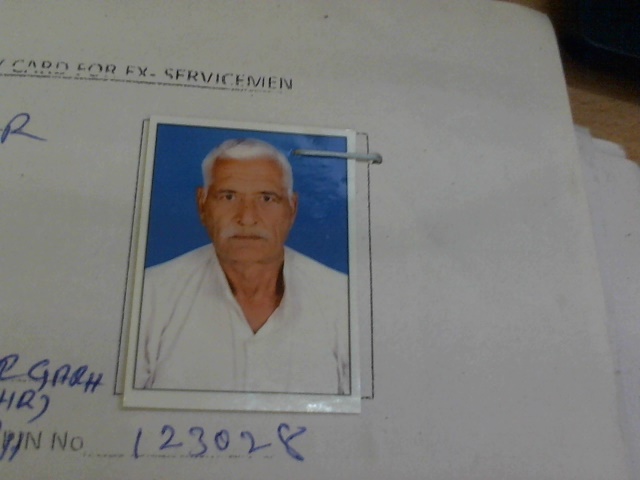 CARD FOR EX- SERVICEMEN
R
GARH
HR)
PIN No 123028